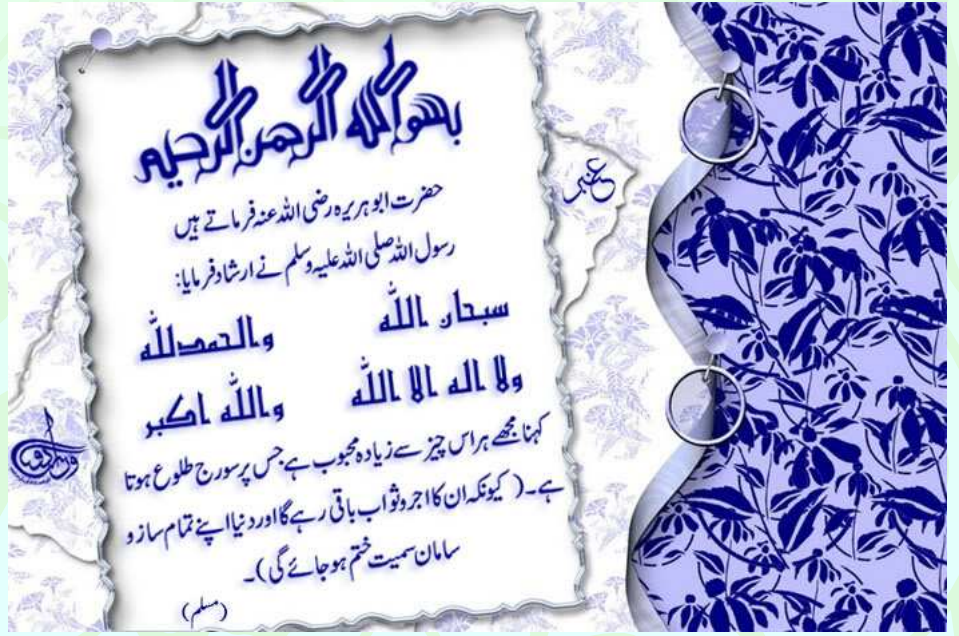 بسم الله الرحمن الرحيم
حضرت ابو ہریرہ رضی اللہ عنہ فرماتے ہیں
رسول اللہ صلی اللہ علیہ وسلم نے ارشاد فرمایا:
سبحان الله والحمدلله
ولا اله الا الله والله اكبر
کہنا مجھے ہر اس چیز سے زیادہ محبوب ہے جس پر سورج طلوع ہوتا
ہے۔( کیونکہ ان کا اجر و ثواب باقی رہے گا اور دنیا اپنے تمام ساز و
سامان سمیت ختم ہو جائے گی)۔
(مسلم)